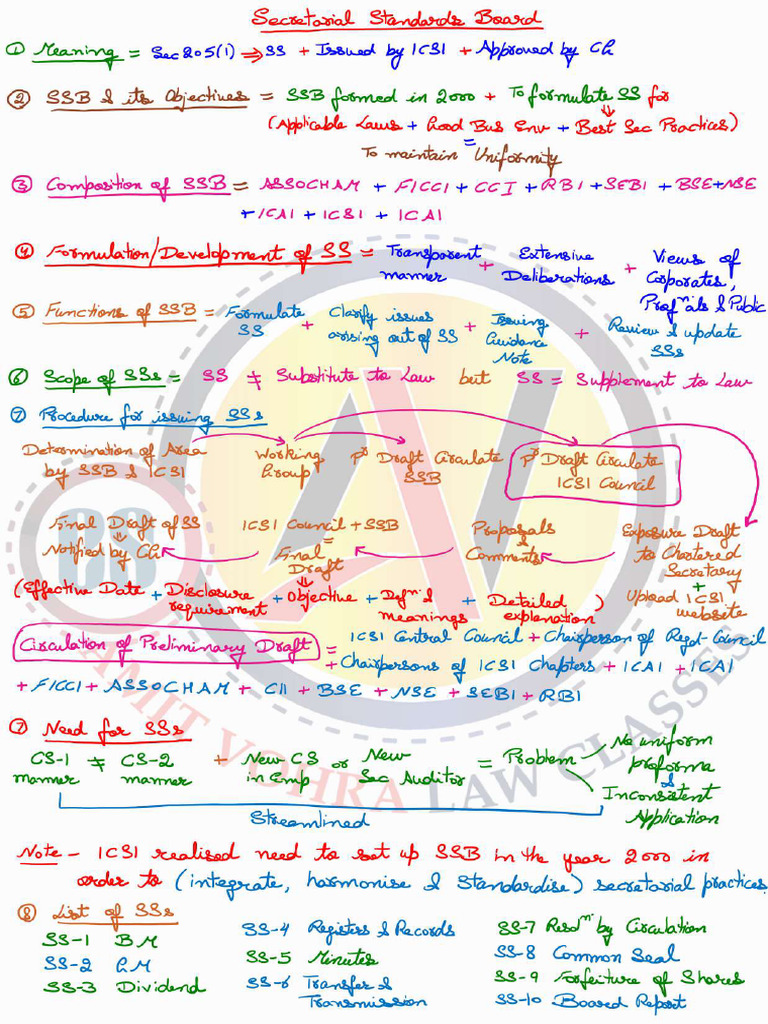 Secretarial Standards Board
① Meaning = Sec 205(1) ⇒ SS + Issued by ICSI + Approved by CG
② SSB & its Objectives = SSB formed in 2000 + To formulate SS for
(Applicable Laws + Good Bus Env + Best Sec Practices)
To maintain Uniformity
③ Composition of SSB = ASSOCHAM + FICCI + CCI + RBI + SEBI + BSE + NSE
+ ICAI + ICSI + ICAI
④ Formulation/Development of SS = Transparent manner + Extensive Deliberations + Views of Corporates, Profnals & Public
⑤ Functions of SSB = Formulate SS + Clarify issues arising out of SS + Issuing Guidance Note + Review & update SSs
⑥ Scope of SSs = SS ≠ Substitute to Law but SS = Supplement to Law
⑦ Procedure for issuing SSs
Determination of Area by SSB & ICSI
Working Group
Draft Circulate SSB
Draft Circulate ICSI Council
Exposure Draft to Chartered Secretary + Upload ICSI website
Proposals & Comments
ICSI Council + SSB = Final Draft
Final Draft of SS ⇒ Notified by CG
(Effective Date + Disclosure requirement + Objective + Defn & meanings + Detailed explanation)
Circulation of Preliminary Draft = ICSI Central Council + Chairperson of Regd Council
+ Chairpersons of ICSI Chapters + ICAI + ICAI
+ FICCI + ASSOCHAM + CII + BSE + NSE + SEBI + RBI
⑦ Need for SSs
CS-1 manner ≠ CS-2 manner + New CS in Emp or New Sec Auditor = Problem
No uniform proforma
&
Inconsistent Application
Streamlined
Note - ICSI realised need to set up SSB in the year 2000 in
order to (integrate, harmonise & Standardise) secretarial practices.
⑧ List of SSs
SS-1 BM
SS-2 GM
SS-3 Dividend
SS-4 Registers & Records
SS-5 Minutes
SS-6 Transfer & Transmission
SS-7 Reson by Circulation
SS-8 Common Seal
SS-9 Forfeiture of Shares
SS-10 Board Report
CS
AMIT VOHRA LAW CLASSES